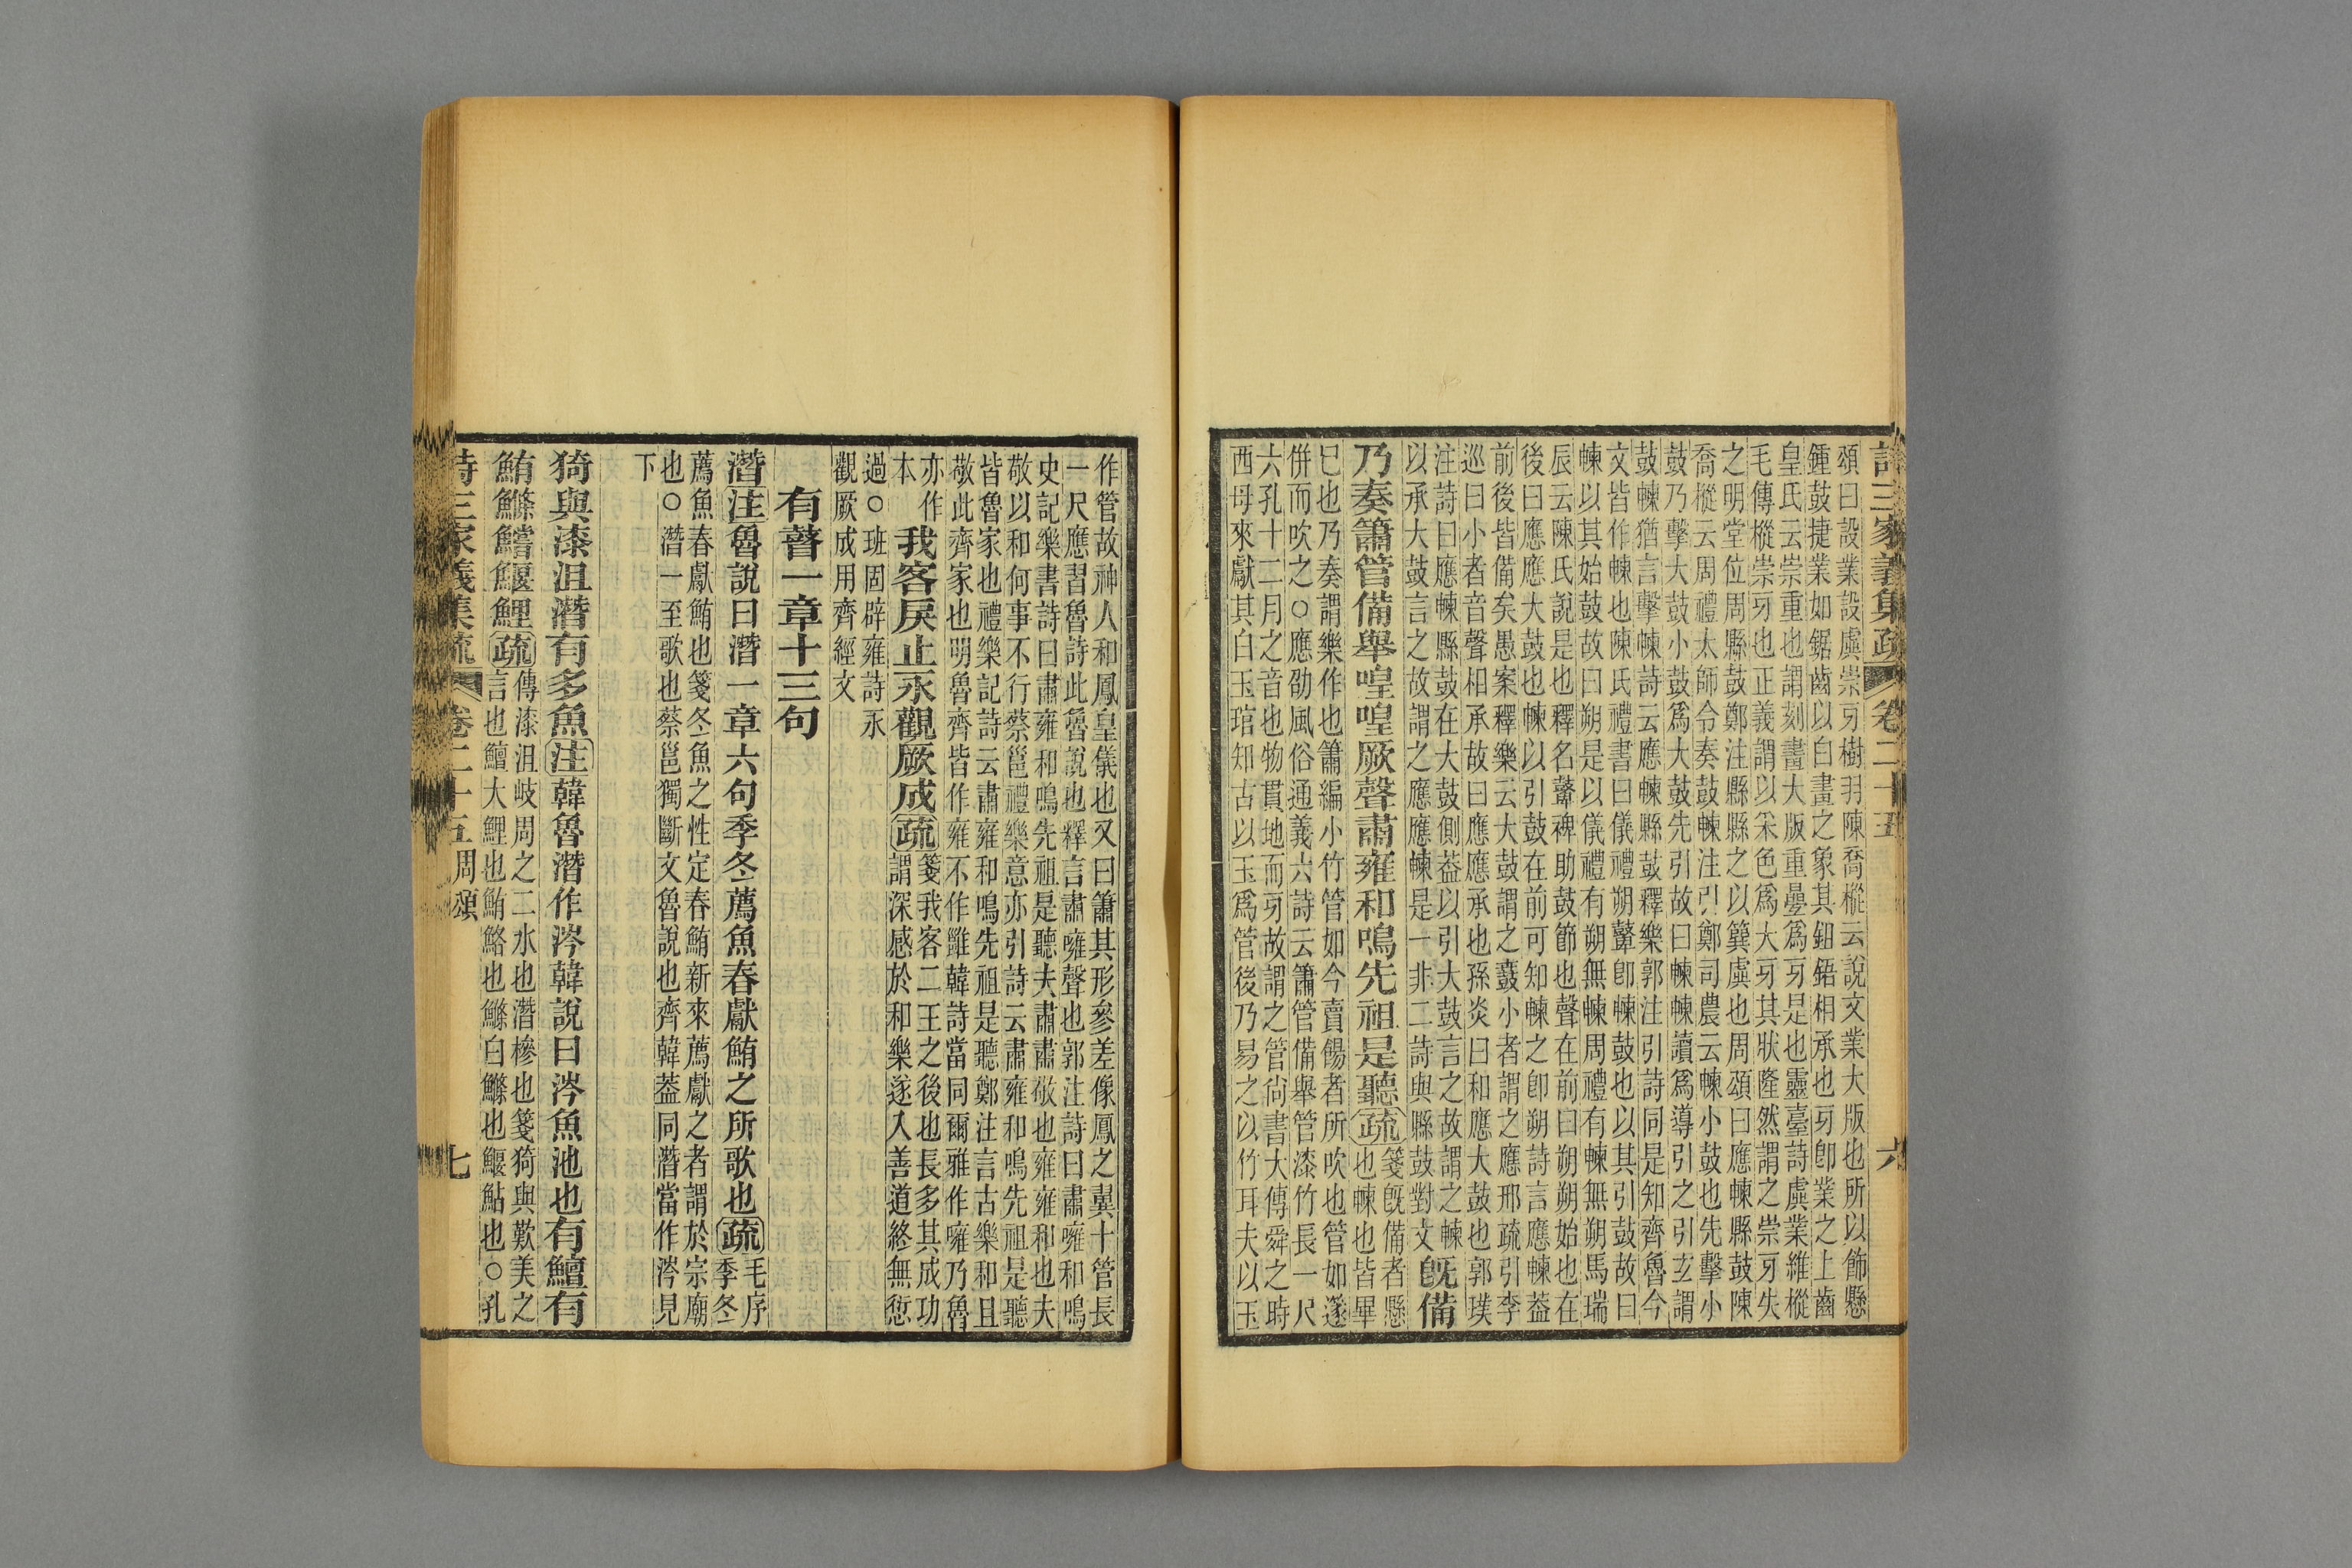 詩三家義集疏 卷二十五 六
頌曰設業設虡崇牙樹羽陳喬樅云說文業大版也所以飾懸
鍾鼓捷業如鋸齒以白畫之象其鉏鋙相承也牙卽業之上齒
皇氏云崇重也謂刻畫大版重壘爲牙是也靈臺詩虡業維樅
毛傳樅崇牙也正義謂以采色爲大牙其狀隆然謂之崇牙失
之明堂位周縣鼓鄭注縣縣之以簨虡也周頌曰應朄縣鼓陳
喬樅云周禮太師令奏鼓朄注引鄭司農云朄小鼓也先擊小
鼓乃擊大鼓小鼓爲大鼓先引故曰朄朄讀爲導引之引玄謂
鼓朄猶言擊朄詩云應朄縣鼓釋樂郭注引詩同是知齊魯今
文皆作朄也陳氏禮書曰儀禮朔鼙卽朄鼓也以其引鼓故曰
朄以其始鼓故曰朔是以儀禮有朔無朄周禮有朄無朔馬瑞
辰云陳氏說是也釋名鼙裨助鼓節也聲在前曰朔朔始也在
後曰應應大鼓也朄以引鼓在前可知朄之卽朔詩言應朄葢
前後皆備矣愚案釋樂云大鼓謂之鼖小者謂之應邢疏引李
巡曰小者音聲相承故曰應應承也孫炎曰和應大鼓也郭璞
注詩曰應朄縣鼓在大鼓側葢以引大鼓言之故謂之朄
以承大鼓言之故謂之應應朄是一非二詩與縣鼓對文
旣備
乃奏簫管備舉喤喤厥聲肅雍和鳴先祖是聽疏
箋旣備者懸
也朄也皆畢
已也乃奏謂樂作也簫編小竹管如今賣餳者所吹也管如篴
併而吹之○應劭風俗通義六詩云簫管備舉管漆竹長一尺
六孔十二月之音也物貫地而牙故謂之管尙書大傳舜之時
西母來獻其白玉琯知古以玉爲管後乃易之以竹耳夫以玉
作管故神人和鳳皇儀也又曰簫其形參差像鳳之翼十管長
一尺應習魯詩此魯說也釋言肅噰聲也郭注詩曰肅噰和鳴
史記樂書詩曰肅雍和鳴先祖是聽夫肅肅敬也雍雍和也夫
敬以和何事不行蔡邕禮樂意亦引詩云肅雍和鳴先祖是聽
皆魯家也禮樂記詩云肅雍和鳴先祖是聽鄭注言古樂和且
敬此齊家也明魯齊皆作雍不作雝韓詩當同爾雅作噰乃魯
亦作
本
我客戾止永觀厥成疏
箋我客二王之後也長多其成功
謂深感於和樂遂入善道終無愆
過○班固辟雍詩永
觀厥成用齊經文
有瞽一章十三句
潛注魯說曰潛一章六句季冬薦魚春獻鮪之所歌也疏
毛序
季冬
薦魚春獻鮪也箋冬魚之性定春鮪新來薦獻之者謂於宗廟
也○潛一至歌也蔡邕獨斷文魯說也齊韓葢同潛當作涔見
下
猗與漆沮潛有多魚注韓魯潛作涔韓說曰涔魚池也有鱣有
鮪鰷鱨鰋鯉疏
傳漆沮岐周之二水也潛槮也箋猗與歎美之
言也鱣大鯉也鮪鮥也鰷白鰷也鰋鮎也○孔
詩三家義集疏 卷二十五 周頌 七